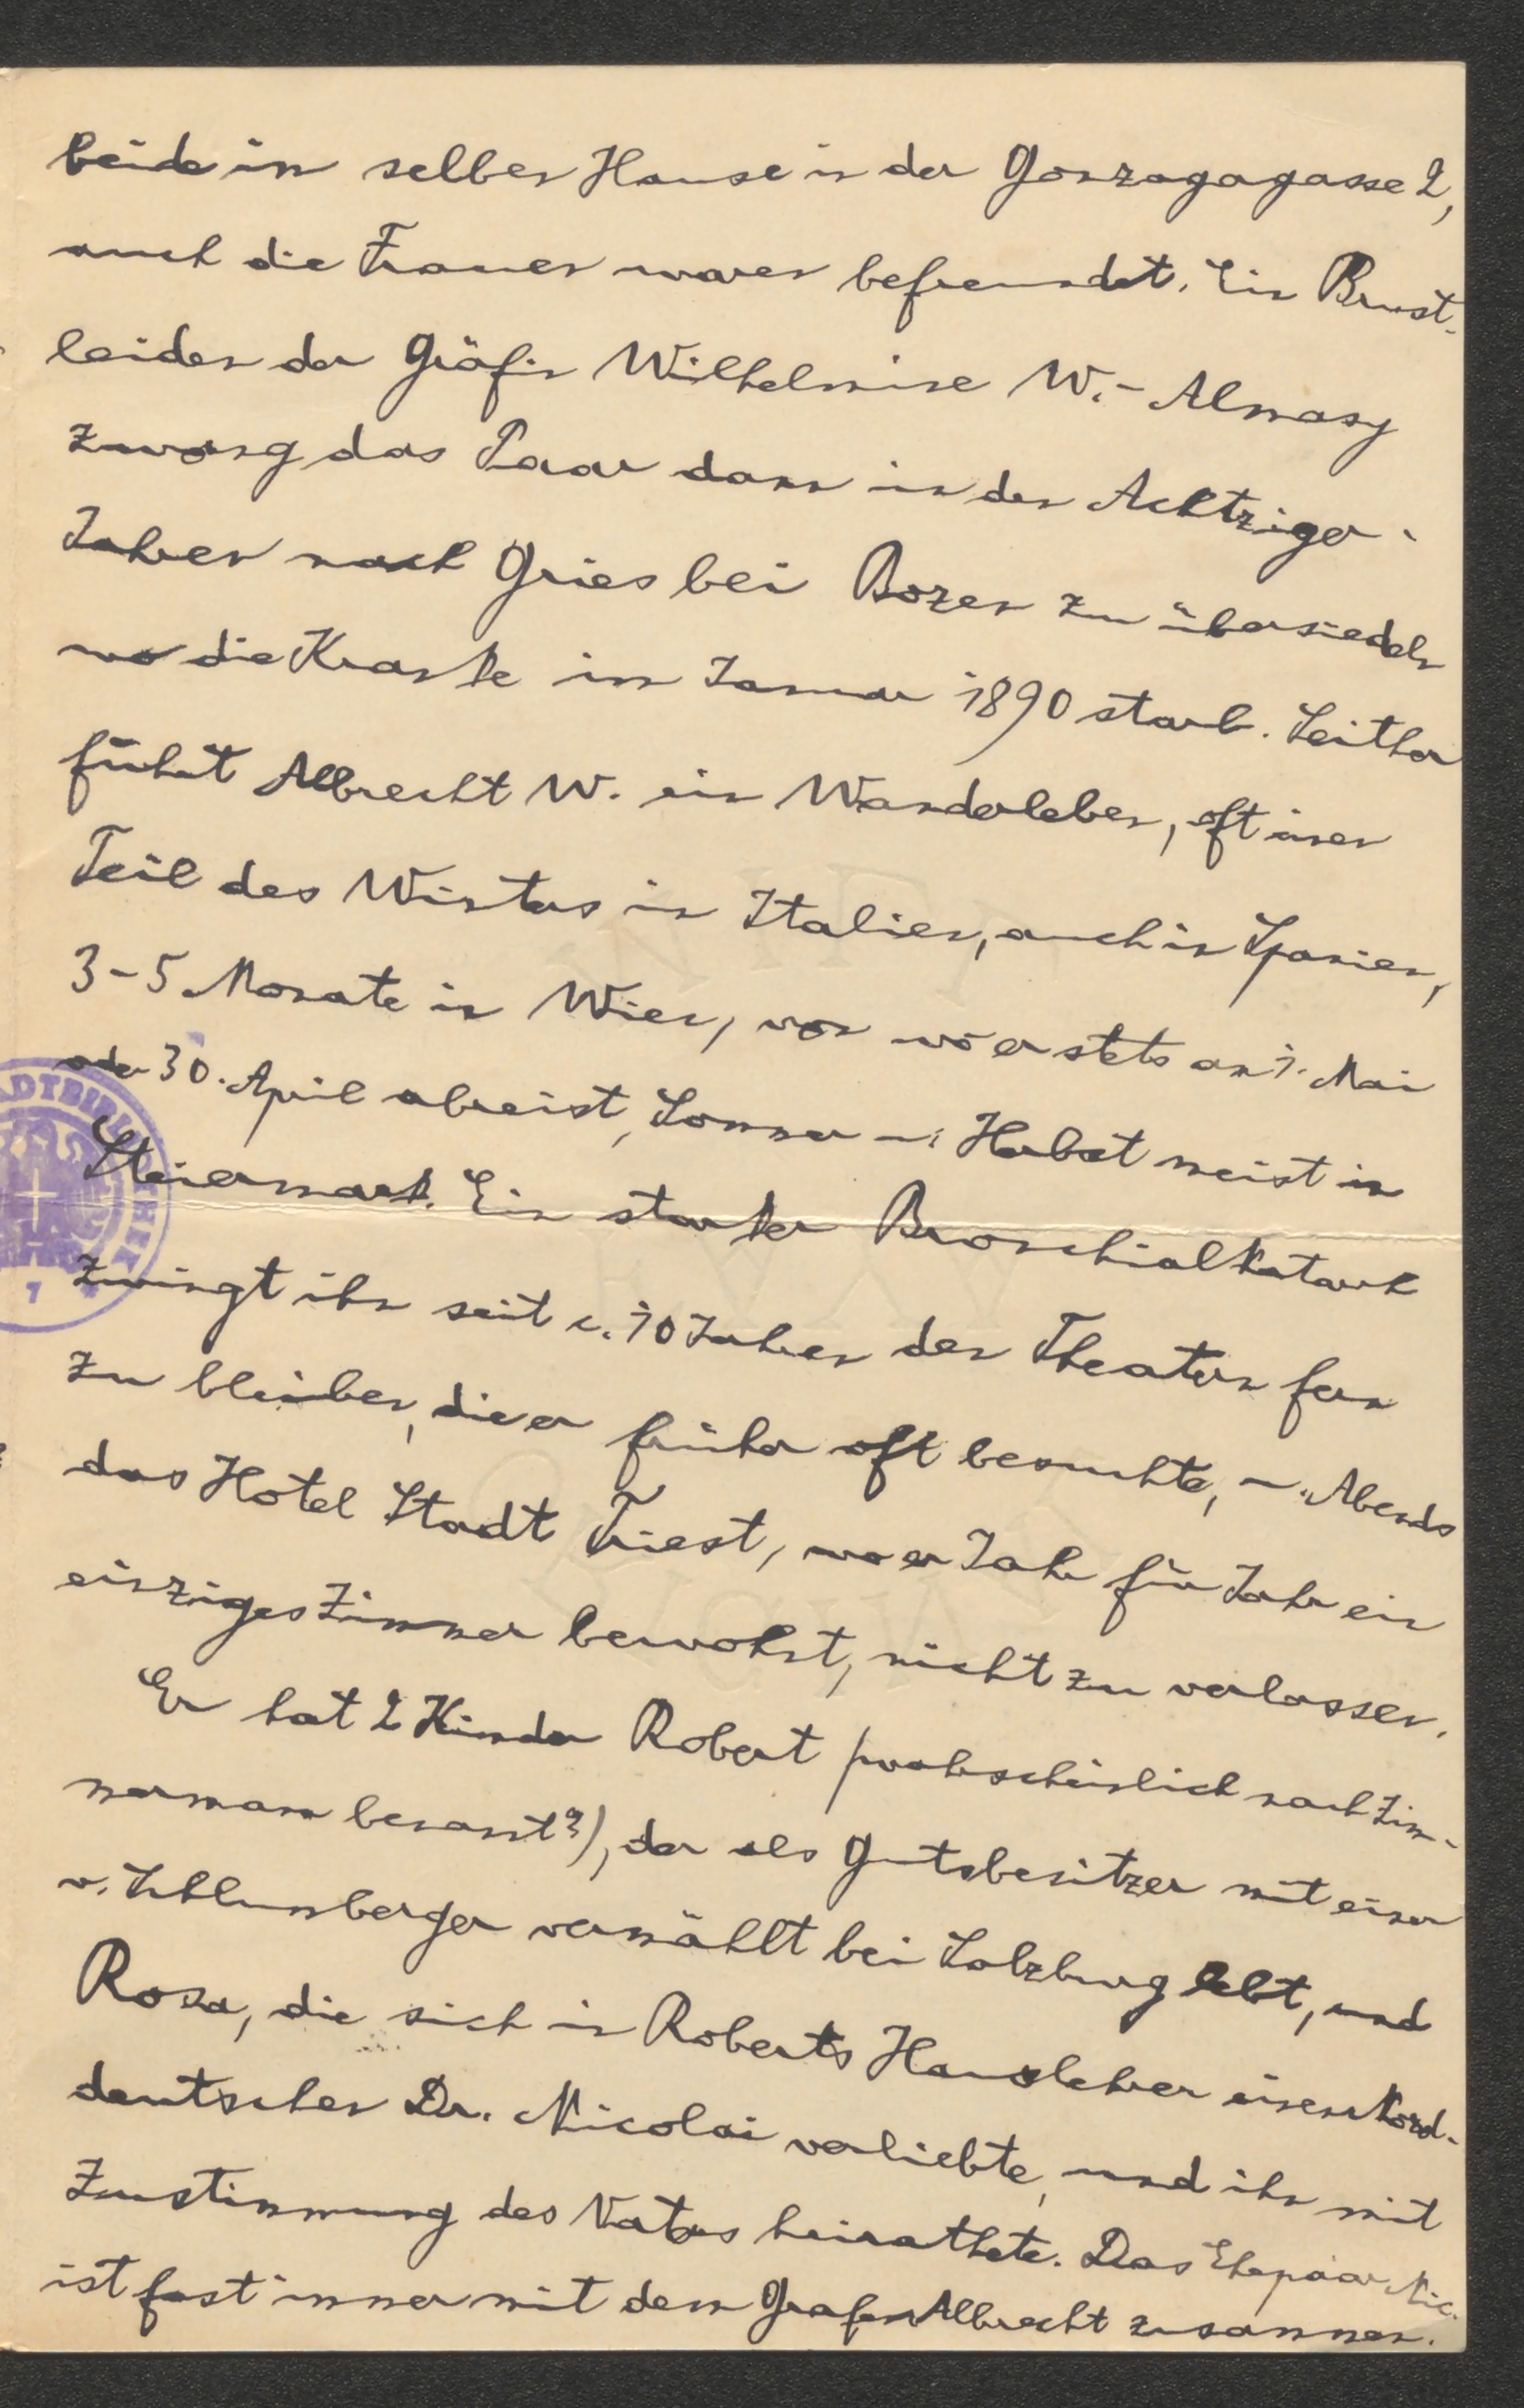 beide in selben Hause in der Gonzagagasse 2,
auch die Frauen waren befreundet. Ein Brust-
leiden der Gräfin Wilhelmine W.-Almasy
zwang das Paar dann in den Achtziger-
Jahren nach Gries bei Bozen zu übersiedeln
wo die Kranke im Januar 1890 starb. Seither
führt Albrecht W. ein Wanderleben, oft einen
Teil des Winters in Italien, auch in Spanien,
3-5 Monate in Wien, von wo er stets am 1. Mai
oder 30. April abreist, Sommer u. Herbst meist in
Steiermark. Ein starker Bronchialkatarrh
zwingt ihn seit c. 10 Jahren den Theatern fern
zu bleiben, die er früher oft besuchte, u. Abends
das Hotel Stadt Triest, wo er Jahr für Jahr ein
einziges Zimmer bewohnt, nicht zu verlassen.
Er hat 2 Kinder Robert (wahrscheinlich nach Zim-
mermann benannt?), der als Gutsbesitzer mit einer
v. Schlumberger vermählt bei Salzburg lebt, und
Rosa, die sich in Roberts Hauslehrer einen Nord-
deutschen Dr. Nicolai verliebte, und ihn mit
Zustimmung des Vaters heirathete. Das Ehepaar Nic.
ist fast immer mit dem Grafen Albrecht zusammen.